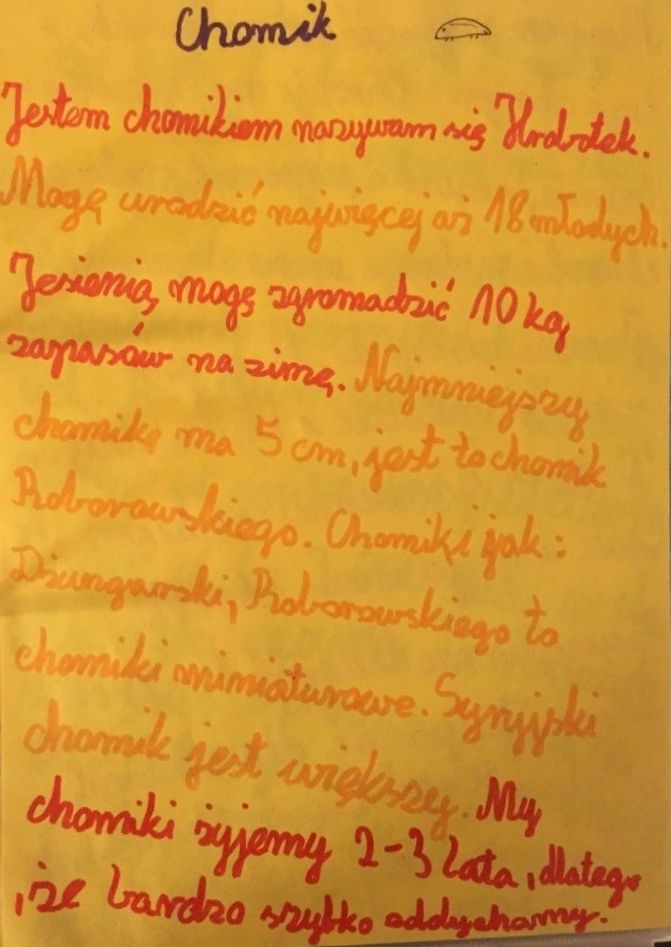 Chomik
Jestem chomikiem nazywam się Hrobotek.
Mogę urodzić najwięcej aż 18 młodych.
Jesienią mogę zgromadzić 10 kg
zapasów na zimę. Najmniejszy
chomik ma 5 cm, jest to chomik
Roborowskiego. Chomiki jak:
Dżungarski, Roborowskiego to
chomiki miniaturowe. Syryjski
chomik jest większy. My
chomiki żyjemy 2-3 lata, dlatego
,że bardzo szybko oddychamy.